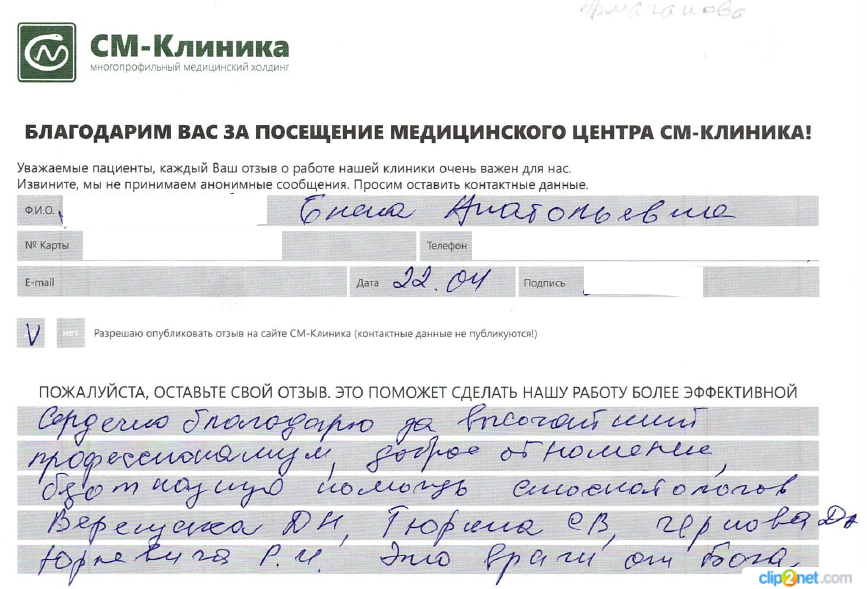 Армаганова
СМ-Клиника
многопрофильный медицинский холдинг
БЛАГОДАРИМ ВАС ЗА ПОСЕЩЕНИЕ МЕДИЦИНСКОГО ЦЕНТРА СМ-КЛИНИКА!
Уважаемые пациенты, каждый Ваш отзыв о работе нашей клиники очень важен для нас.
Извините, мы не принимаем анонимные сообщения. Просим оставить контактные данные.
Ф.И.О. Елена Анатольевна
№ Карты Телефон
E-mail Дата 22.04 Подпись
V нет Разрешаю опубликовать отзыв на сайте СМ-Клиника (контактные данные не публикуются!)
ПОЖАЛУЙСТА, ОСТАВЬТЕ СВОЙ ОТЗЫВ. ЭТО ПОМОЖЕТ СДЕЛАТЬ НАШУ РАБОТУ БОЛЕЕ ЭФФЕКТИВНОЙ
Сердечно благодарю за высочайший
профессионализм, доброе отношение,
помощь стоматологов
Верещака ДН, Тюрина СВ, Чернова
Юркевича Р.И. Это врачи от Бога
clip2net.com